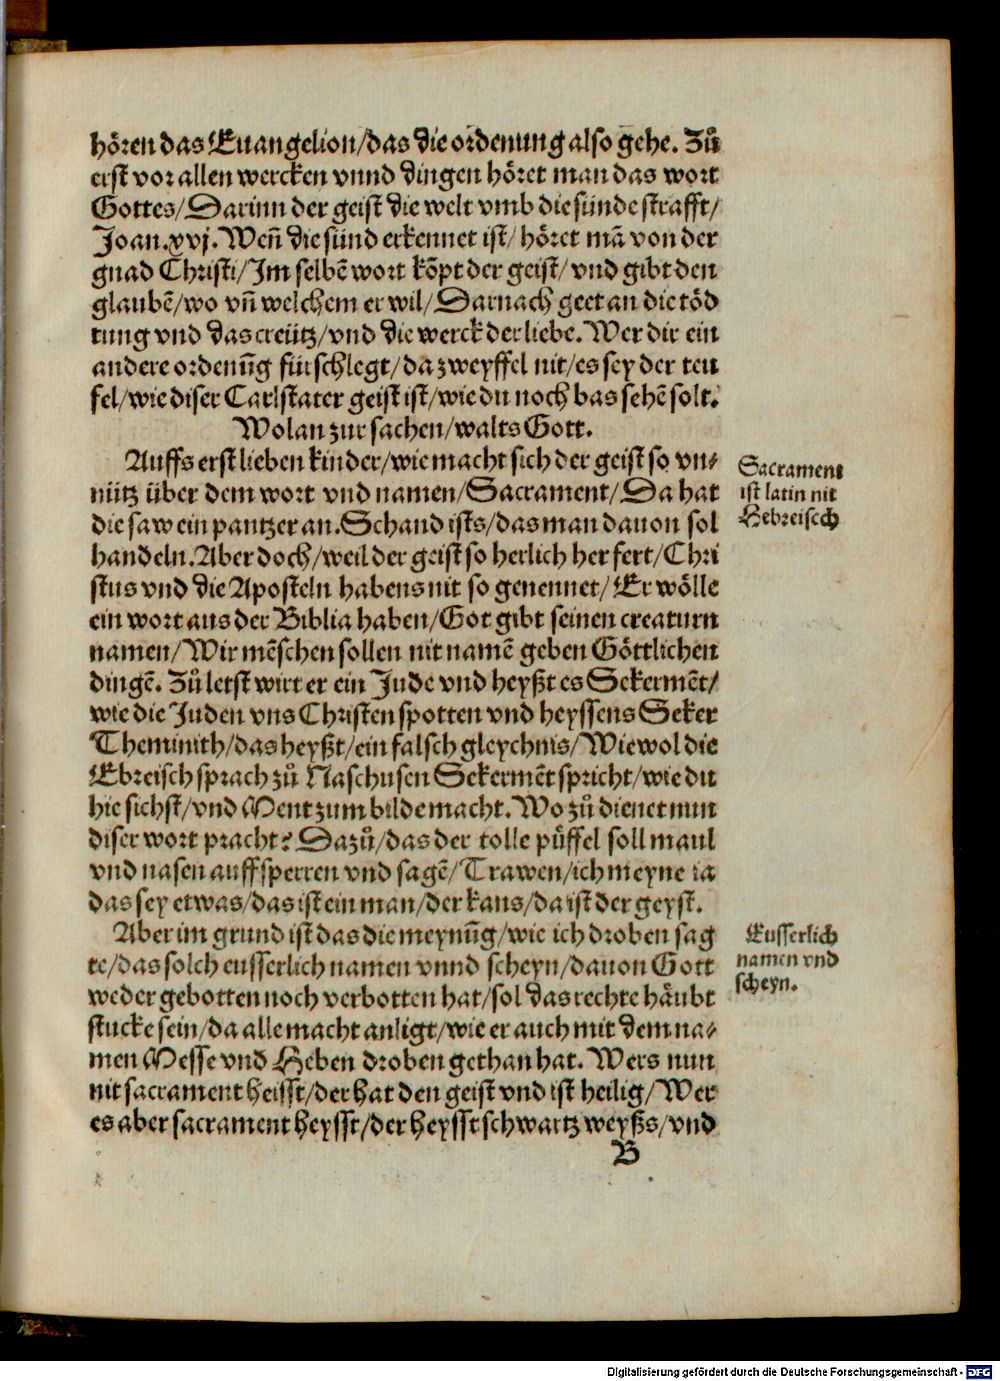 hören das Euangelion/das die ordenung also gehe. Zů
erst vor allen wercken vnnd dingen höret man das wort
Gottes/Darinn der geist die welt vmb die sünde strafft/
Joan.xvj.Weñ die sünd erkennet ist/höret mā von der
gnad Christi/Im selbē wort kōpt der geist/vnd gibt den
glaubē/wo vñ welchem er wil/Darnach geet an die töd
tung vnd das creütz/vnd die werck der liebe. Wer dir ein
andere ordenūg fürschlegt/da zweyffel nit/es sey der teu
fel/wie diser Carlstater geist ist/wie du noch bas sehē solt.
Wolan zur sachen/walts Gott.
Auffs erst lieben kinder/wie macht sich der geist so vn⸗
nütz über dem wort vnd namen/Sacrament/Da hat
die saw ein pantzer an.Schand ists/das man dauon sol
handeln.Aber doch/weil der geist so herlich her fert/Chri
stus vnd die Aposteln habens nit so genennet/Er wölle
ein wort aus der Biblia haben/Got gibt seinen creaturn
namen/Wir mēschen sollen nit namē geben Göttlichen
dingē. Zů letst wirt er ein Jude vnd heyßt es Sekermēt/
wie die Juden vns Christen spotten vnd heyssens Seker
Theminith/das heyßt/ein falsch gleychnis/Wiewol die
Ebreisch sprach zů Naschusen Sekermēt spricht/wie du
hie sichst/vnd Ment zum bilde macht. Wo zů dienet nun
diser wort pracht? Dazů/das der tolle püffel soll maul
vnd nasen auffsperren vnd sagē/Trawen/ich meyne ia
das sey etwas/das ist ein man/der kans/da ist der geyst.
Aber im grund ist das die meynūg/wie ich droben sag
te/das solch eusserlich namen vnnd scheyn/dauon Gott
weder gebotten noch verbotten hat/sol das rechte häubt
stucke sein/da alle macht anligt/wie er auch mit dem na⸗
men Messe vnd Heben droben gethan hat. Wers nun
nit sacrament heisst/der hat den geist vnd ist heilig/Wer
es aber sacrament heysst/der heysst schwartz weyßs/vnd
B
Sacrament
ist latin nit
Hebreisch
Eusserlich
namen vnd
scheyn.
Digitalisierung gefördert durch die Deutsche Forschungsgemeinschaft - DFG